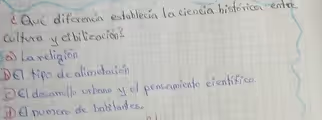 ¿Qué diferencia establecía la ciencia histórica entre
cultura y cibilización?
a) La religión
b) El tipo de alimentación
c) El desarrollo urbano y el pensamiento científico
d) El número de habitantes